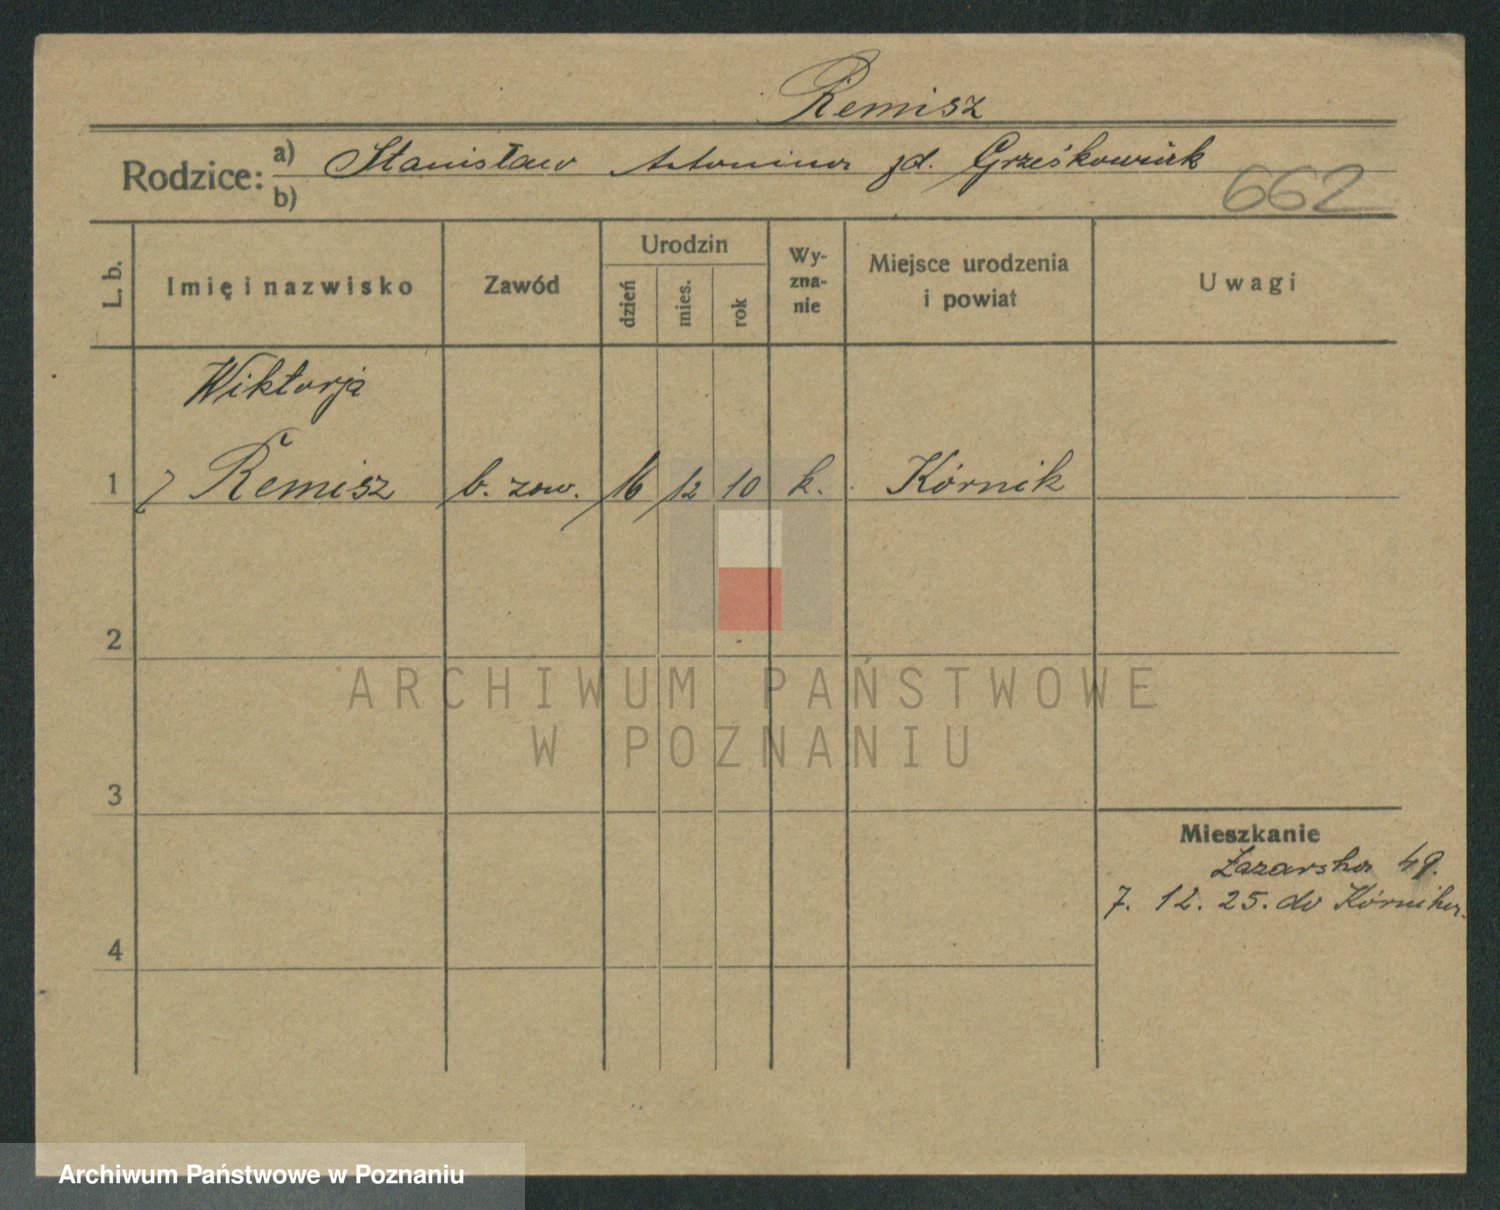 Remisz
Rodzice: a) Stanisław Antonina zd. Grześkowiak
b)
662
L. b. Imię i nazwisko Zawód Urodzin dzień mies. rok Wy-zna-nie Miejsce urodzenia i powiat Uwagi
Wiktorja
1 Remisz b. zaw. 16 12 10 k. Kórnik
2
ARCHIWUM PAŃSTWOWE
W POZNANIU
3
Mieszkanie
Łazarska 49.
7. 12. 25. do Kórnika.
4
Archiwum Państwowe w Poznaniu